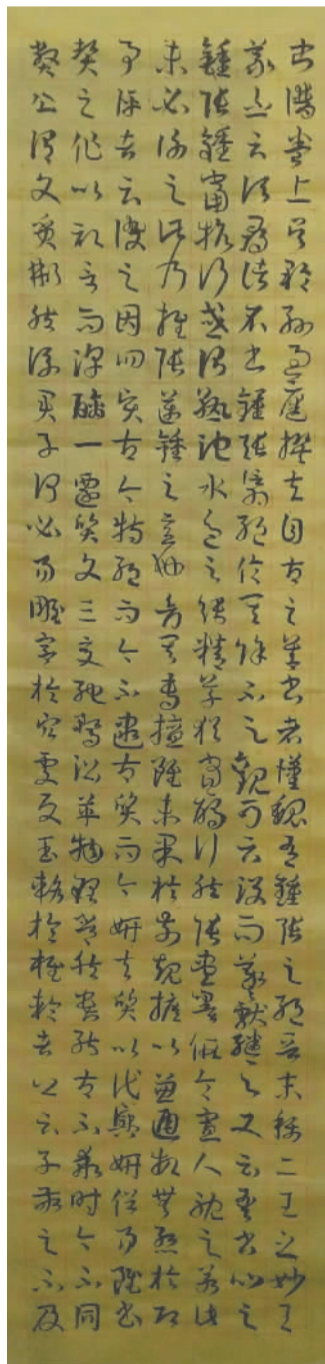 書譜卷上吳郡孫過庭撰夫自古之善書者漢魏有鍾張之絕晉末稱二王之妙王
羲之云頃尋諸名書鍾張信絕倫其餘不足觀可云沒而羲獻繼之又云吾書比之
鍾張鍾當抗行或謂熟池水過之張精草猶當雁行然張盡墨假令寡人耽之若此
未必謝之此乃推張邁鍾之意也考其專擅雖未果於前規摭以兼通故無慚於即
事評者云彼之因四賢古今特絕而今不逮古質而今妍夫質以代興妍俗易雖書
契之作以記言而淳醨一遷質文三變馳騖沿革物理常然貴能古不乖時今不同
弊所謂文質彬然後君子何必易雕宮於穴處反玉輅於椎輪者又云子敬之不及